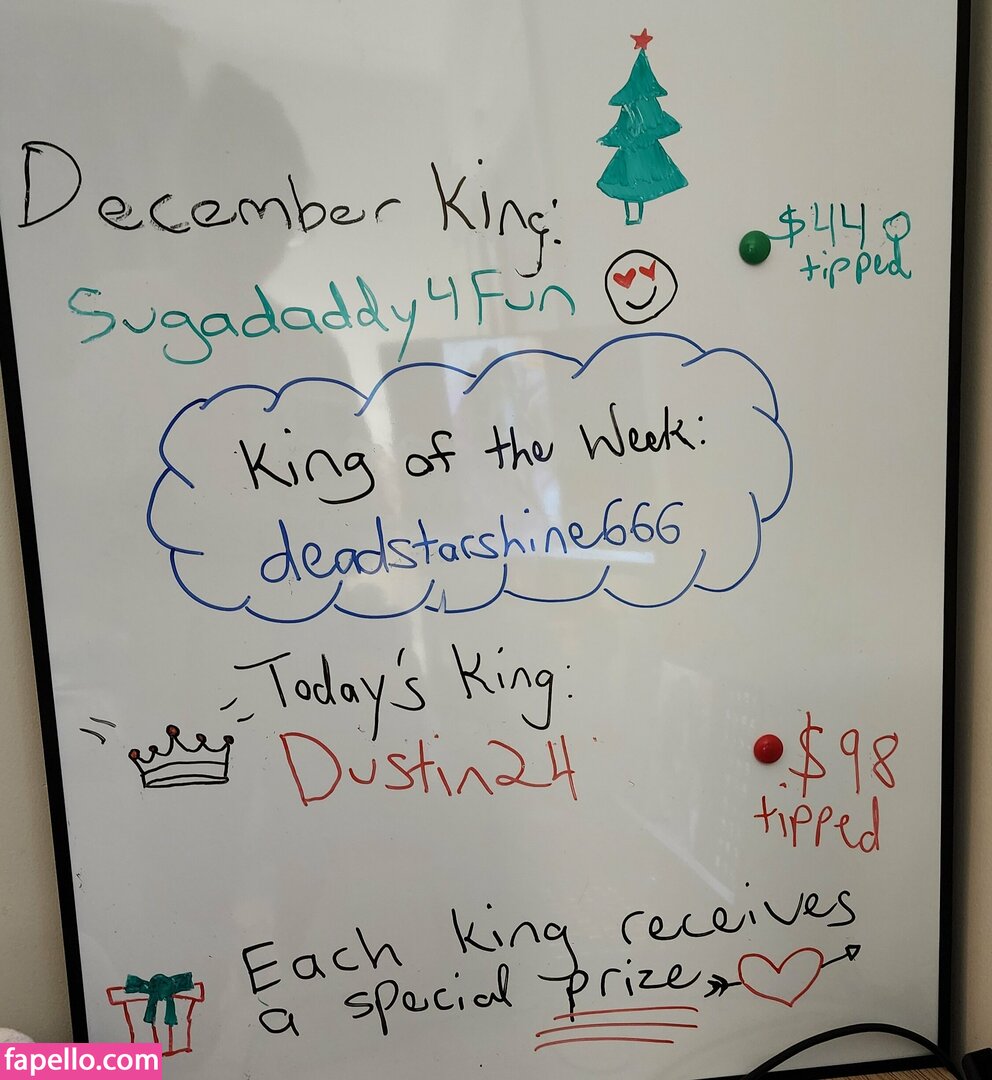 December King:
$449
tipped
Sugadaddy4Fun
King of the Week:
deadstarshine666
Today's King:
Dustin24
$98
tipped
Each king receives
a special prize
fapello.com